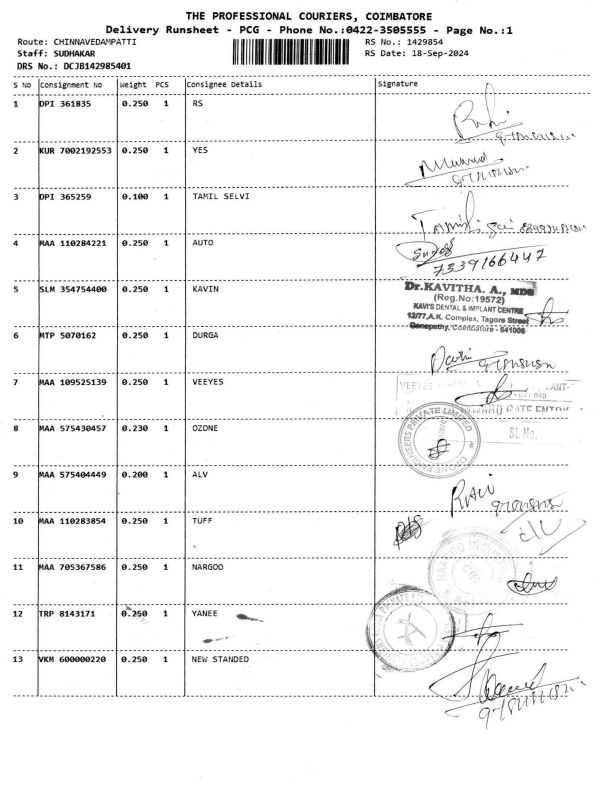 THE PROFESSIONAL COURIERS, COIMBATORE
Delivery Runsheet - PCG - Phone No.:0422-3505555 - Page No.:1
Route: CHINNAVEDAMPATTI RS No.: 1429854
Staff: SUDHAKAR RS Date: 18-Sep-2024
DRS No.: DCJB142985401
S No Consignment No Weight PCS Consignee Details Signature
1 DPI 361835 0.250 1 RS
2 KUR 7002192553 0.250 1 YES
3 DPI 365259 0.100 1 TAMIL SELVI
4 MAA 110284221 0.250 1 AUTO
7339166447
5 SLM 354754400 0.250 1 KAVIN
Dr.KAVITHA. A., MDS
(Reg.No:19572)
KAVI'S DENTAL & IMPLANT CENTRE
12/77,A.K. Complex, Tagore Street
Ganapathy, Coimbatore - 641006
6 MTP 5070162 0.250 1 DURGA
7 MAA 109525139 0.250 1 VEEYES
VEEYES
8 MAA 575430457 0.230 1 OZONE
SL No.
9 MAA 575404449 0.200 1 ALV
10 MAA 110283854 0.250 1 TUFF
11 MAA 705367586 0.250 1 NARGOO
12 TRP 8143171 0.250 1 YANEE
13 VKM 600000220 0.250 1 NEW STANDED